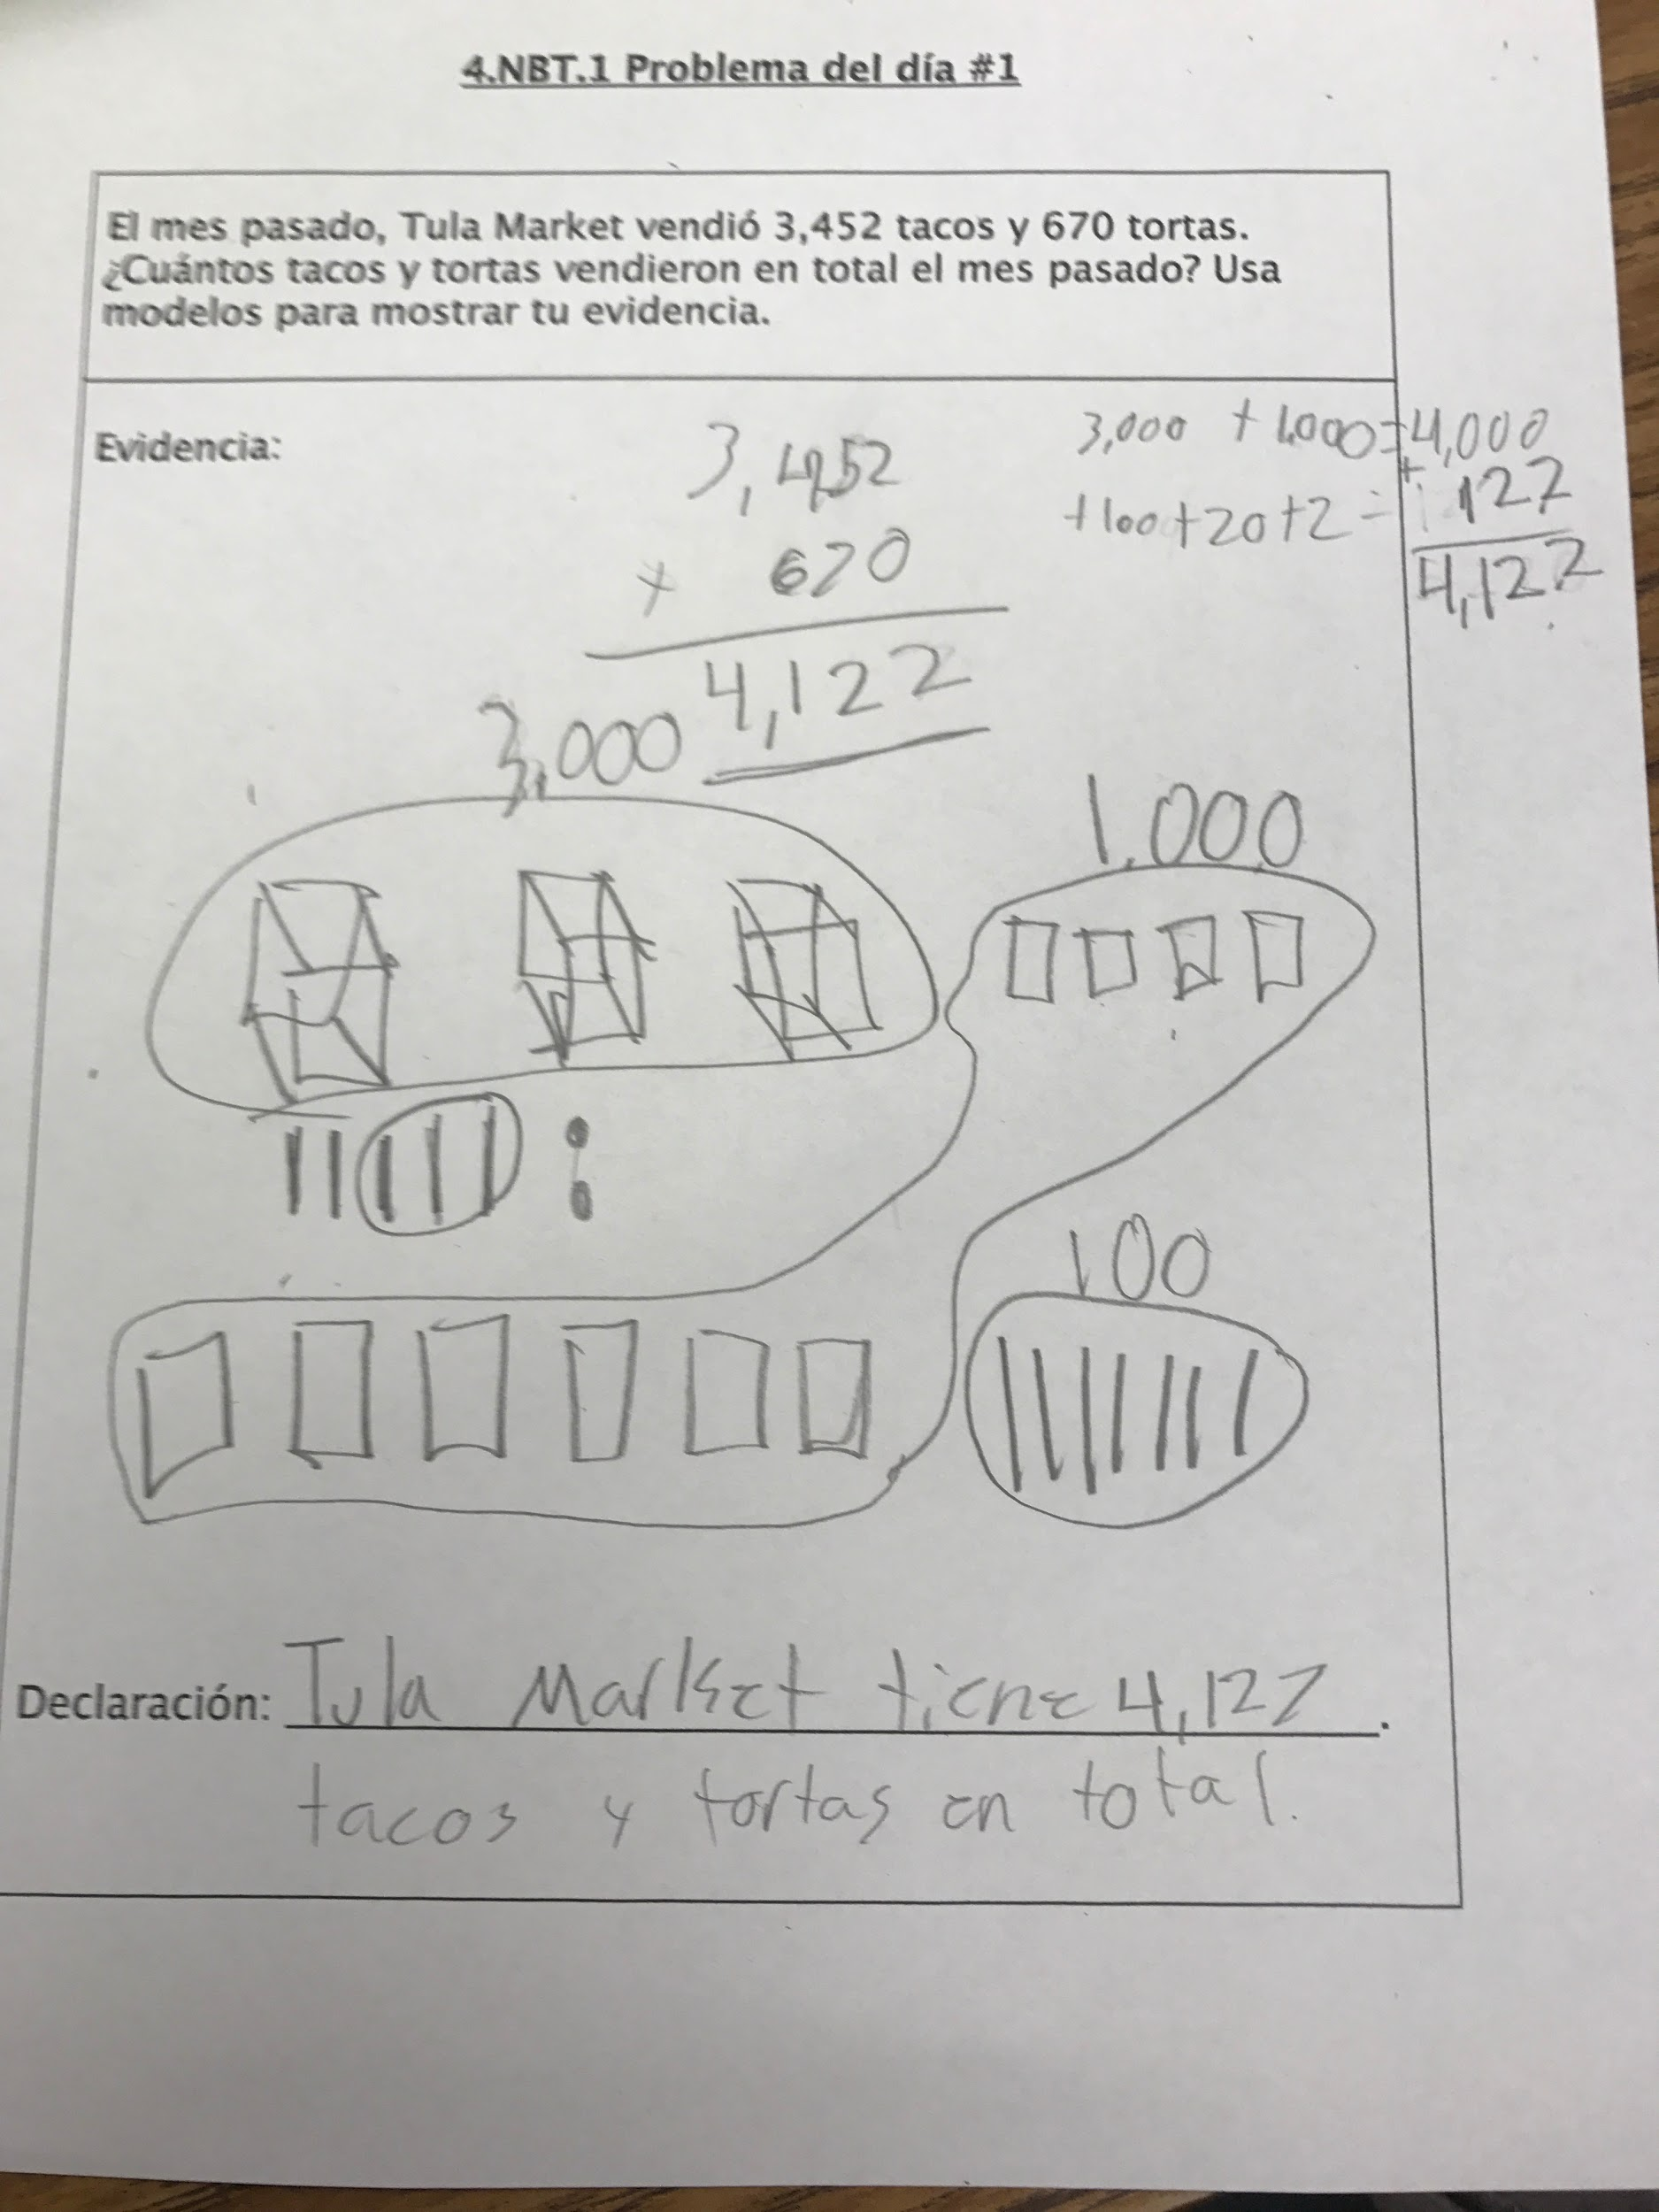 4.NBT.1 Problema del día #1
El mes pasado, Tula Market vendió 3,452 tacos y 670 tortas.
¿Cuántos tacos y tortas vendieron en total el mes pasado? Usa
modelos para mostrar tu evidencia.
Evidencia:
3,452
+ 670
4,122
3,000 + 1,000 = 4,000
+100+20+2 = + 122
4,122
3,000
1,000
100
Declaración: Tula Market tiene 4,122.
tacos y tortas en total.